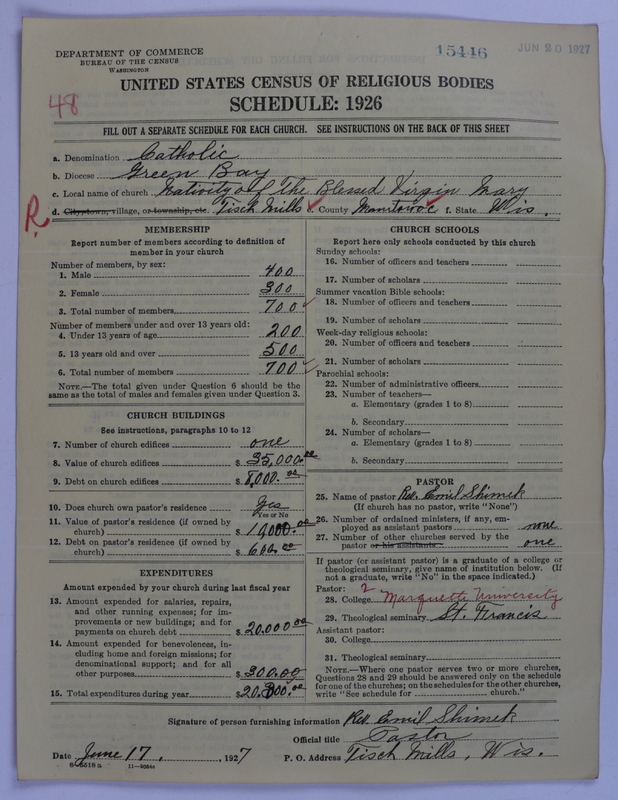 DEPARTMENT OF COMMERCE
BUREAU OF THE CENSUS
WASHINGTON
15446
JUN 20 1927
48
UNITED STATES CENSUS OF RELIGIOUS BODIES
SCHEDULE: 1926
FILL OUT A SEPARATE SCHEDULE FOR EACH CHURCH. SEE INSTRUCTIONS ON THE BACK OF THIS SHEET
a. Denomination Catholic
b. Diocese Green Bay
c. Local name of church Nativity of The Blessed Virgin Mary
R
d. City, town, village, or township, etc. Tisch Mills e. County Manitowoc f. State Wis.
MEMBERSHIP
Report number of members according to definition of
member in your church
Number of members, by sex:
1. Male 400
2. Female 300
3. Total number of members 700
Number of members under and over 13 years old:
4. Under 13 years of age 200
5. 13 years old and over 500
6. Total number of members 700
NOTE.—The total given under Question 6 should be the
same as the total of males and females given under Question 3.
CHURCH BUILDINGS
See instructions, paragraphs 10 to 12
7. Number of church edifices one
8. Value of church edifices $ 35,000.00
9. Debt on church edifices $ 8,000.00
10. Does church own pastor's residence Yes
Yes or No
11. Value of pastor's residence (if owned by
church) $
12. Debt on pastor's residence (if owned by
church) $
EXPENDITURES
Amount expended by your church during last fiscal year
13. Amount expended for salaries, repairs,
and other running expenses; for im-
provements or new buildings; and for
payments on church debt $ 20.000.00
14. Amount expended for benevolences, in-
cluding home and foreign missions; for
denominational support; and for all
other purposes $ 300.00
15. Total expenditures during year $ 20.300.00
CHURCH SCHOOLS
Report here only schools conducted by this church
Sunday schools:
16. Number of officers and teachers
17. Number of scholars
Summer vacation Bible schools:
18. Number of officers and teachers
19. Number of scholars
Week-day religious schools:
20. Number of officers and teachers
21. Number of scholars
Parochial schools:
22. Number of administrative officers
23. Number of teachers—
a. Elementary (grades 1 to 8)
b. Secondary
24. Number of scholars—
a. Elementary (grades 1 to 8)
b. Secondary
PASTOR
25. Name of pastor Rev. Emil Shimek
(If church has no pastor, write "None")
26. Number of ordained ministers, if any, em-
ployed as assistant pastors none
27. Number of other churches served by the
pastor or his assistants one
If pastor (or assistant pastor) is a graduate of a college or
theological seminary, give name of institution below. (If
not a graduate, write "No" in the space indicated.)
Pastor: 2
28. College Marquette University
29. Theological seminary St. Francis
Assistant pastor:
30. College
31. Theological seminary
NOTE.—Where one pastor serves two or more churches,
Questions 28 and 29 should be answered only on the schedule
for one of the churches; on the schedules for the other churches,
write "See schedule for church."
Signature of person furnishing information Rev. Emil Shimek
Official title Pastor
Date June 17, 1927 P. O. Address Tisch Mills, Wis.
11—20544